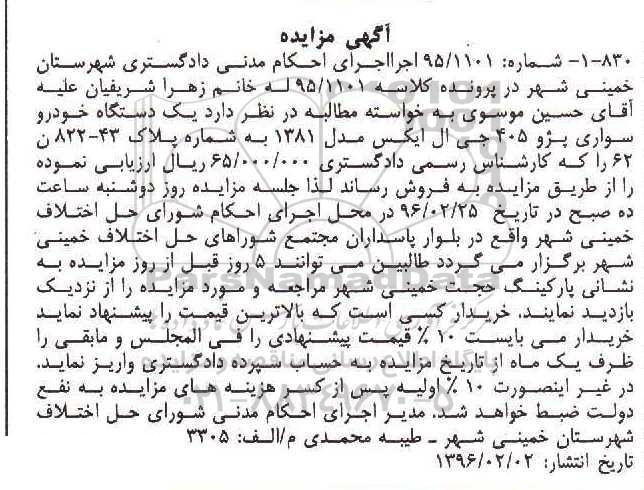 آگهی مزایده
۱-۸۳۰- شماره: ۹۵/۱۱۰۱ اجرااجرای احکام مدنی دادگستری شهرستان
خمینی شهر در پرونده کلاسه ۹۵/۱۱۰۱ له خانم زهرا شریفیان علیه
آقای حسین موسوی به خواسته مطالبه در نظر دارد یک دستگاه خودرو
سواری پژو ۴۰۵ جی ال ایکس مدل ۱۳۸۱ به شماره پلاک ۴۳-۸۲۲ ن
۶۲ را که کارشناس رسمی دادگستری ۶۵/۰۰۰/۰۰۰ ریال ارزیابی نموده
را از طریق مزایده به فروش رساند لذا جلسه مزایده روز دوشنبه ساعت
ده صبح در تاریخ ۹۶/۰۲/۲۵ در محل اجرای احکام شورای حل اختلاف
خمینی شهر واقع در بلوار پاسداران مجتمع شوراهای حل اختلاف خمینی
شهر برگزار می گردد طالبین می توانند ۵ روز قبل از روز مزایده به
نشانی پارکینگ حجت خمینی شهر مراجعه و مورد مزایده را از نزدیک
بازدید نمایند. خریدار کسی است که بالاترین قیمت را پیشنهاد نماید
خریدار می بایست ۱۰ ٪ قیمت پیشنهادی را فی المجلس و مابقی را
ظرف یک ماه از تاریخ مزایده به حساب سپرده دادگستری واریز نماید.
در غیر اینصورت ۱۰ ٪ اولیه پس از کسر هزینه های مزایده به نفع
دولت ضبط خواهد شد. مدیر اجرای احکام مدنی شورای حل اختلاف
شهرستان خمینی شهر ـ طیبه محمدی م/الف: ۳۳۰۵
تاریخ انتشار: ۱۳۹۶/۰۲/۰۲